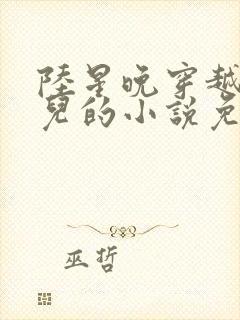 陸星晚穿越
兒的小說免
巫哲